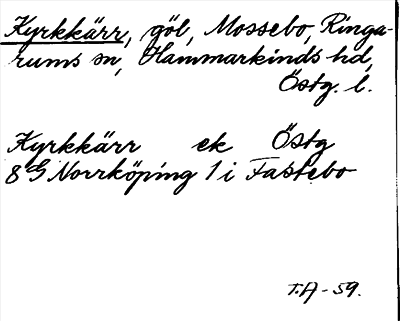 Kyrkkärr, göl, Mossebo, Ringa-
rums sn, Hammarkinds hd,
Östg. l.
Kyrkkärr ek Östg
8 G Norrköping 1 i Fastebo
T.A-59.